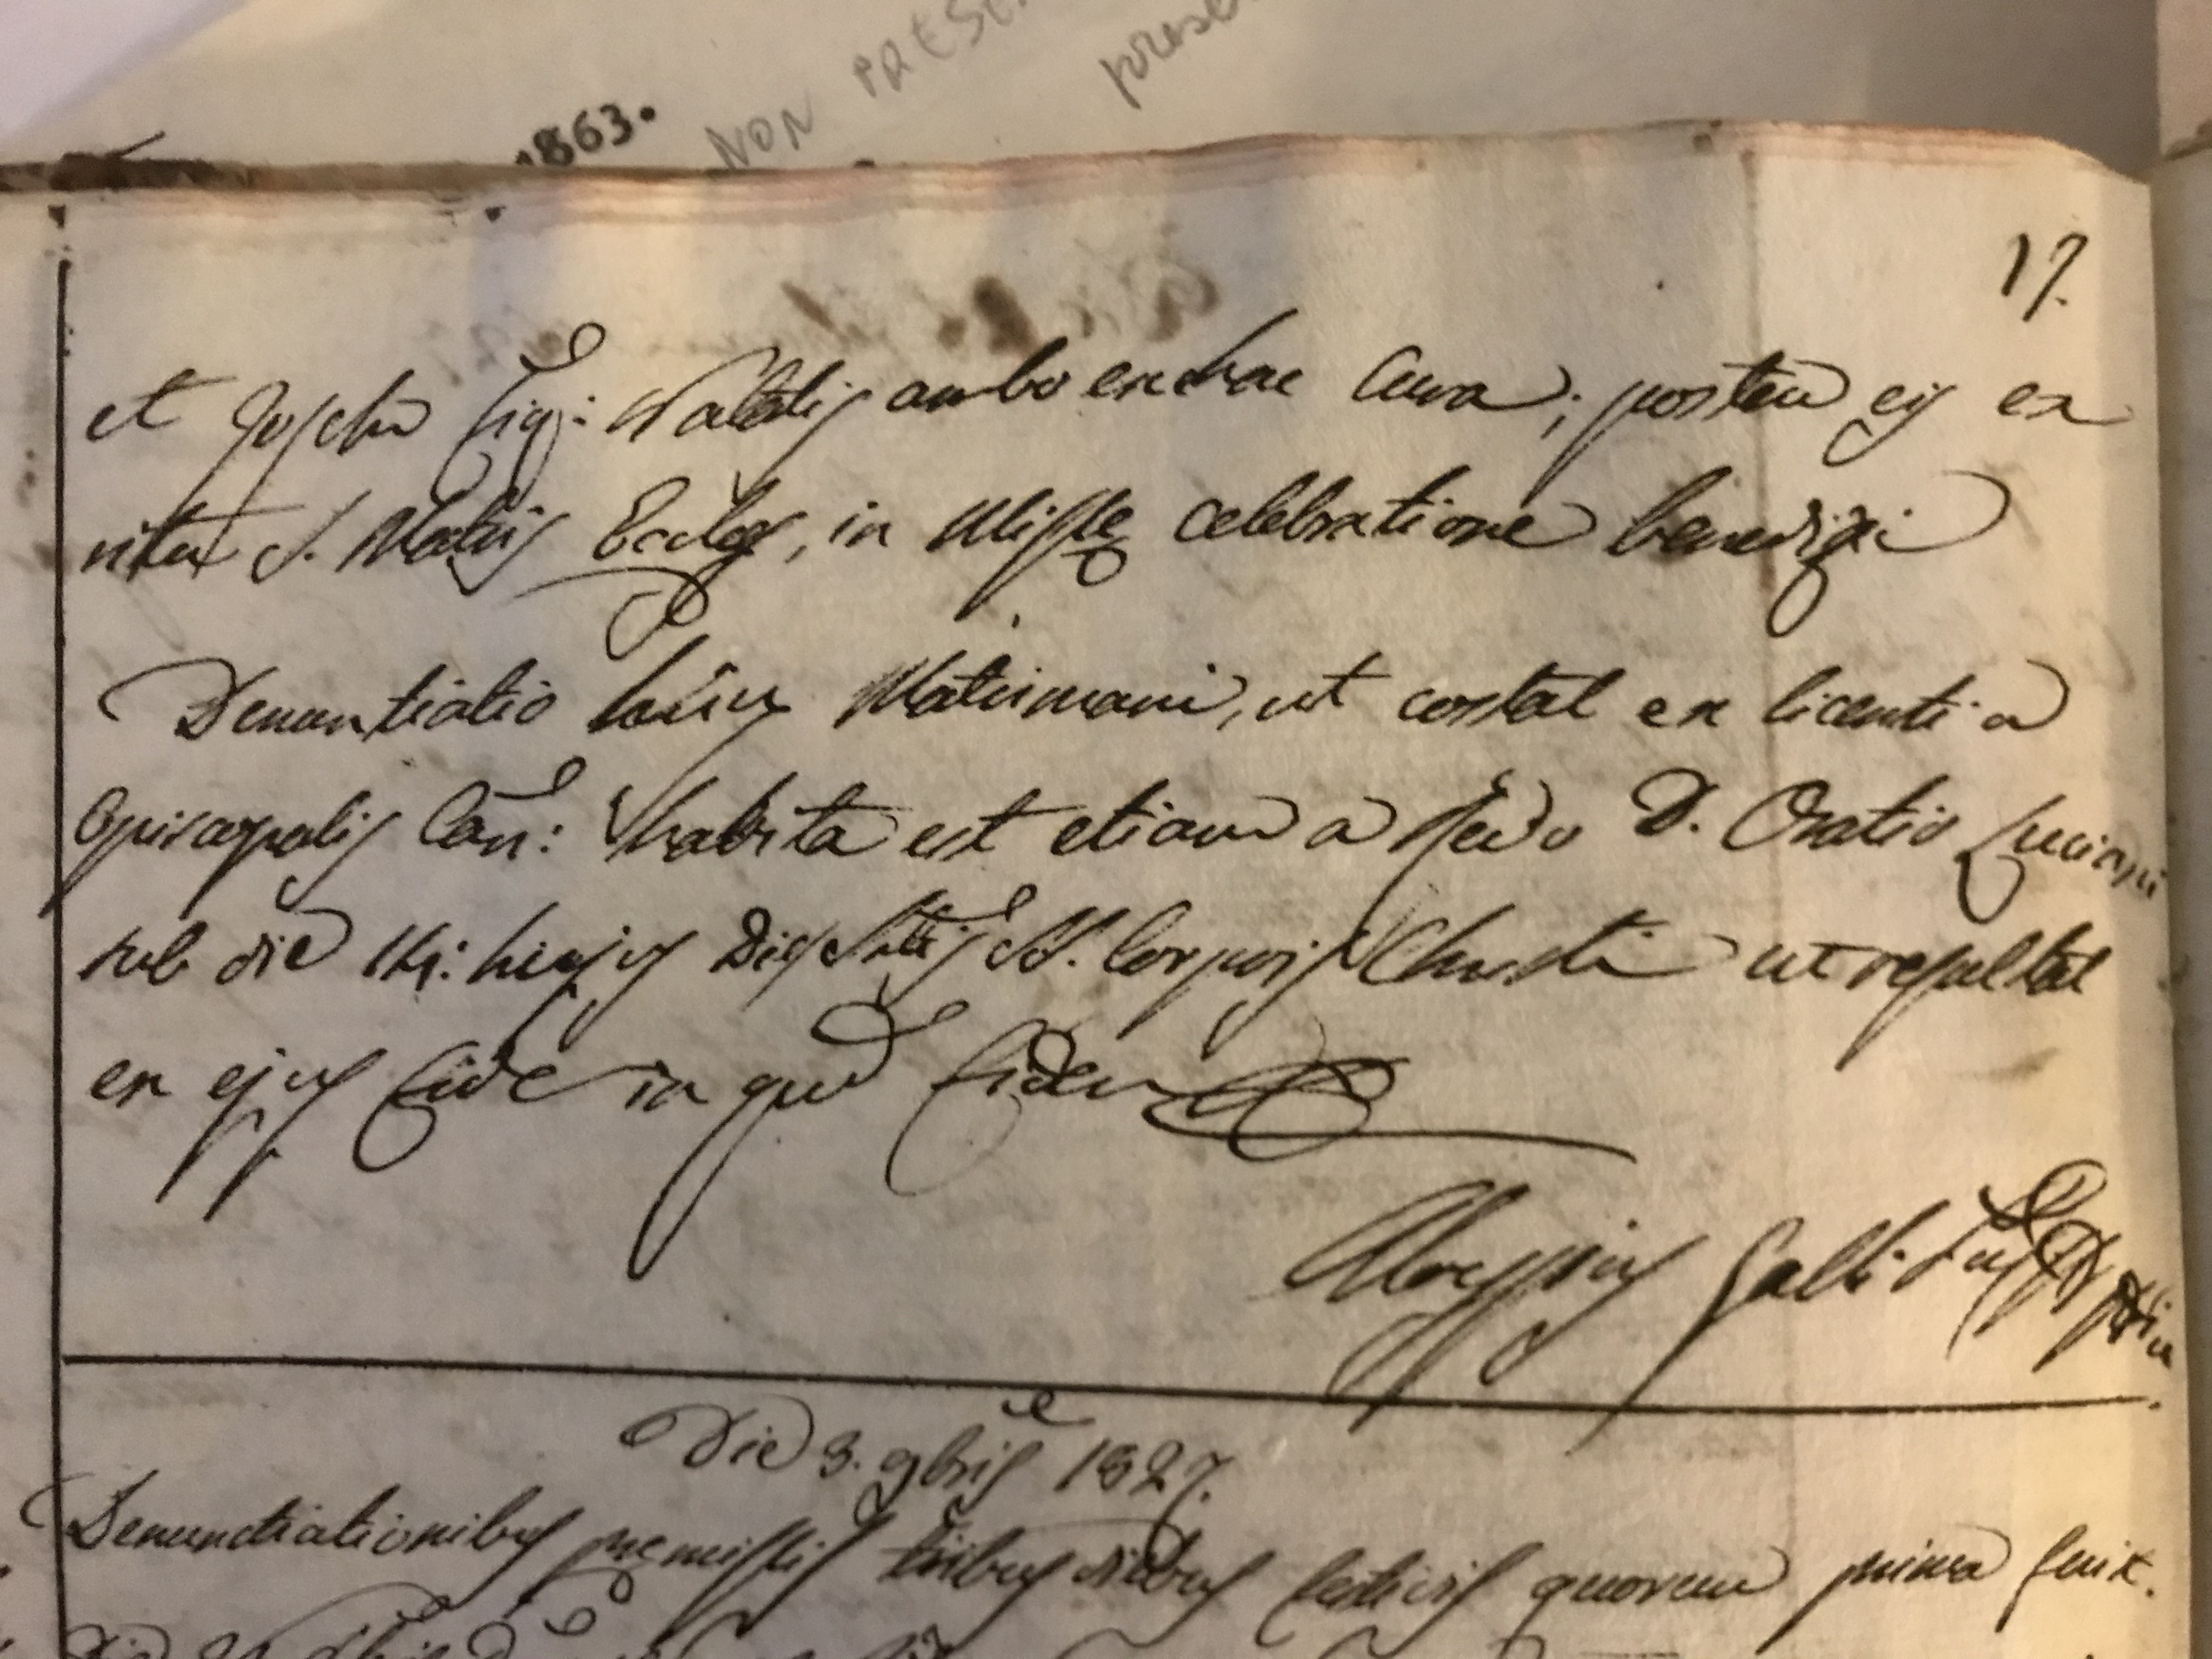 1863.
NON PRESE
prese
17.
et Joseph fig: Natalis ambo ex hac Cura; postea eis ex
ritu S. Matris Eccles, in Missę celebratione benedixi
Denuntiatio hujus Matrimoni, ut costat ex licentia
Episcopalis Can: habita est etiam a Redo D. Oratio Luciani
sub die 14: hujus Die S. Corporis Christi ut resultat
ex ejus fide in quo fidem
Aloysius Galli
Die 3. 9bris 1827.
Denunctiationibus premissis tribus diebus festivis quorum prima fuit.